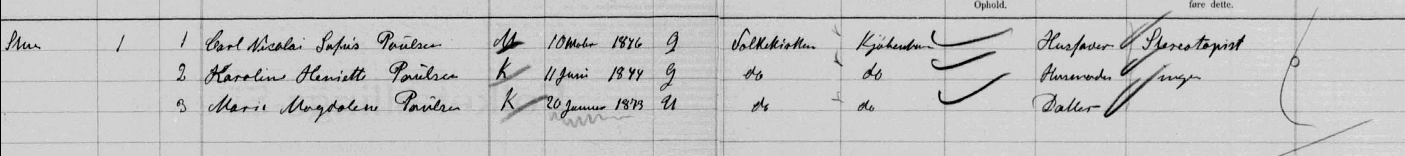 Ophold. føre dette.
Stuen 1 1 Carl Nicolai Sofus Paülsen M 10 Marts 1846 G Folkekirken Kjøbenhavn Husfader Stereotypist
2 Karoline Henriette Paülsen K 11 Juni 1844 G do do Husmoder Ingen
3 Marie Magdalene Paülsen K 20 Januar 1873 U do do Datter